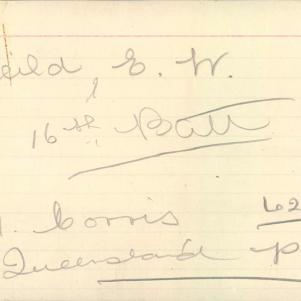 eild, E. W.
16th Batt
. Corris L02
Queensland P